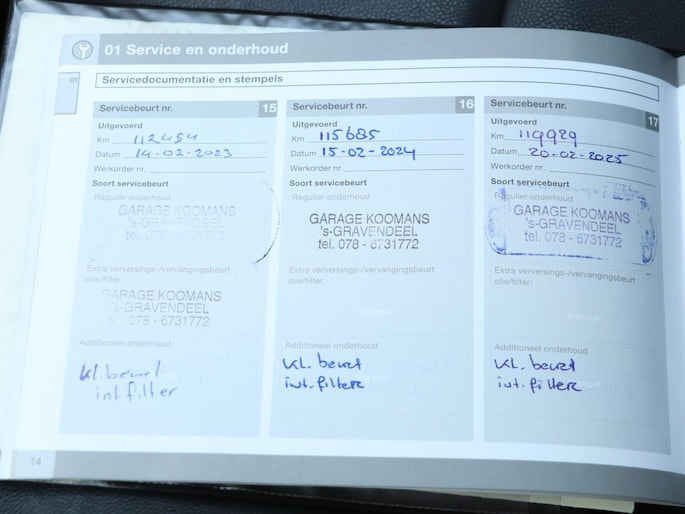 01 Service en onderhoud
01
Servicedocumentatie en stempels
Servicebeurt nr. 15
Uitgevoerd
Km 112454
Datum 14-02-2023
Werkorder nr.
Soort servicebeurt
Regulier onderhoud
GARAGE KOOMANS
's-GRAVENDEEL
tel. 078 - 6731772
Extra verversings-/vervangingsbeurt
olie/filter:
GARAGE KOOMANS
's-GRAVENDEEL
tel. 078 - 6731772
Additioneel onderhoud
kl. beurt
int filter
Servicebeurt nr. 16
Uitgevoerd
Km 115685
Datum 15-02-2024
Werkorder nr.
Soort servicebeurt
Regulier onderhoud
GARAGE KOOMANS
's-GRAVENDEEL
tel. 078 - 6731772
Extra verversings-/vervangingsbeurt
olie/filter:
Stempel
Additioneel onderhoud
KL. beurt
int. filter
Servicebeurt nr. 17
Uitgevoerd
Km 119929
Datum 20-02-2025
Werkorder nr.
Soort servicebeurt
Regulier onderhoud
GARAGE KOOMANS
's-GRAVENDEEL
tel. 078 - 6731772
Extra verversings-/vervangingsbeurt
olie/filter:
Stempel
Additioneel onderhoud
KL. beurt
int. filter
14